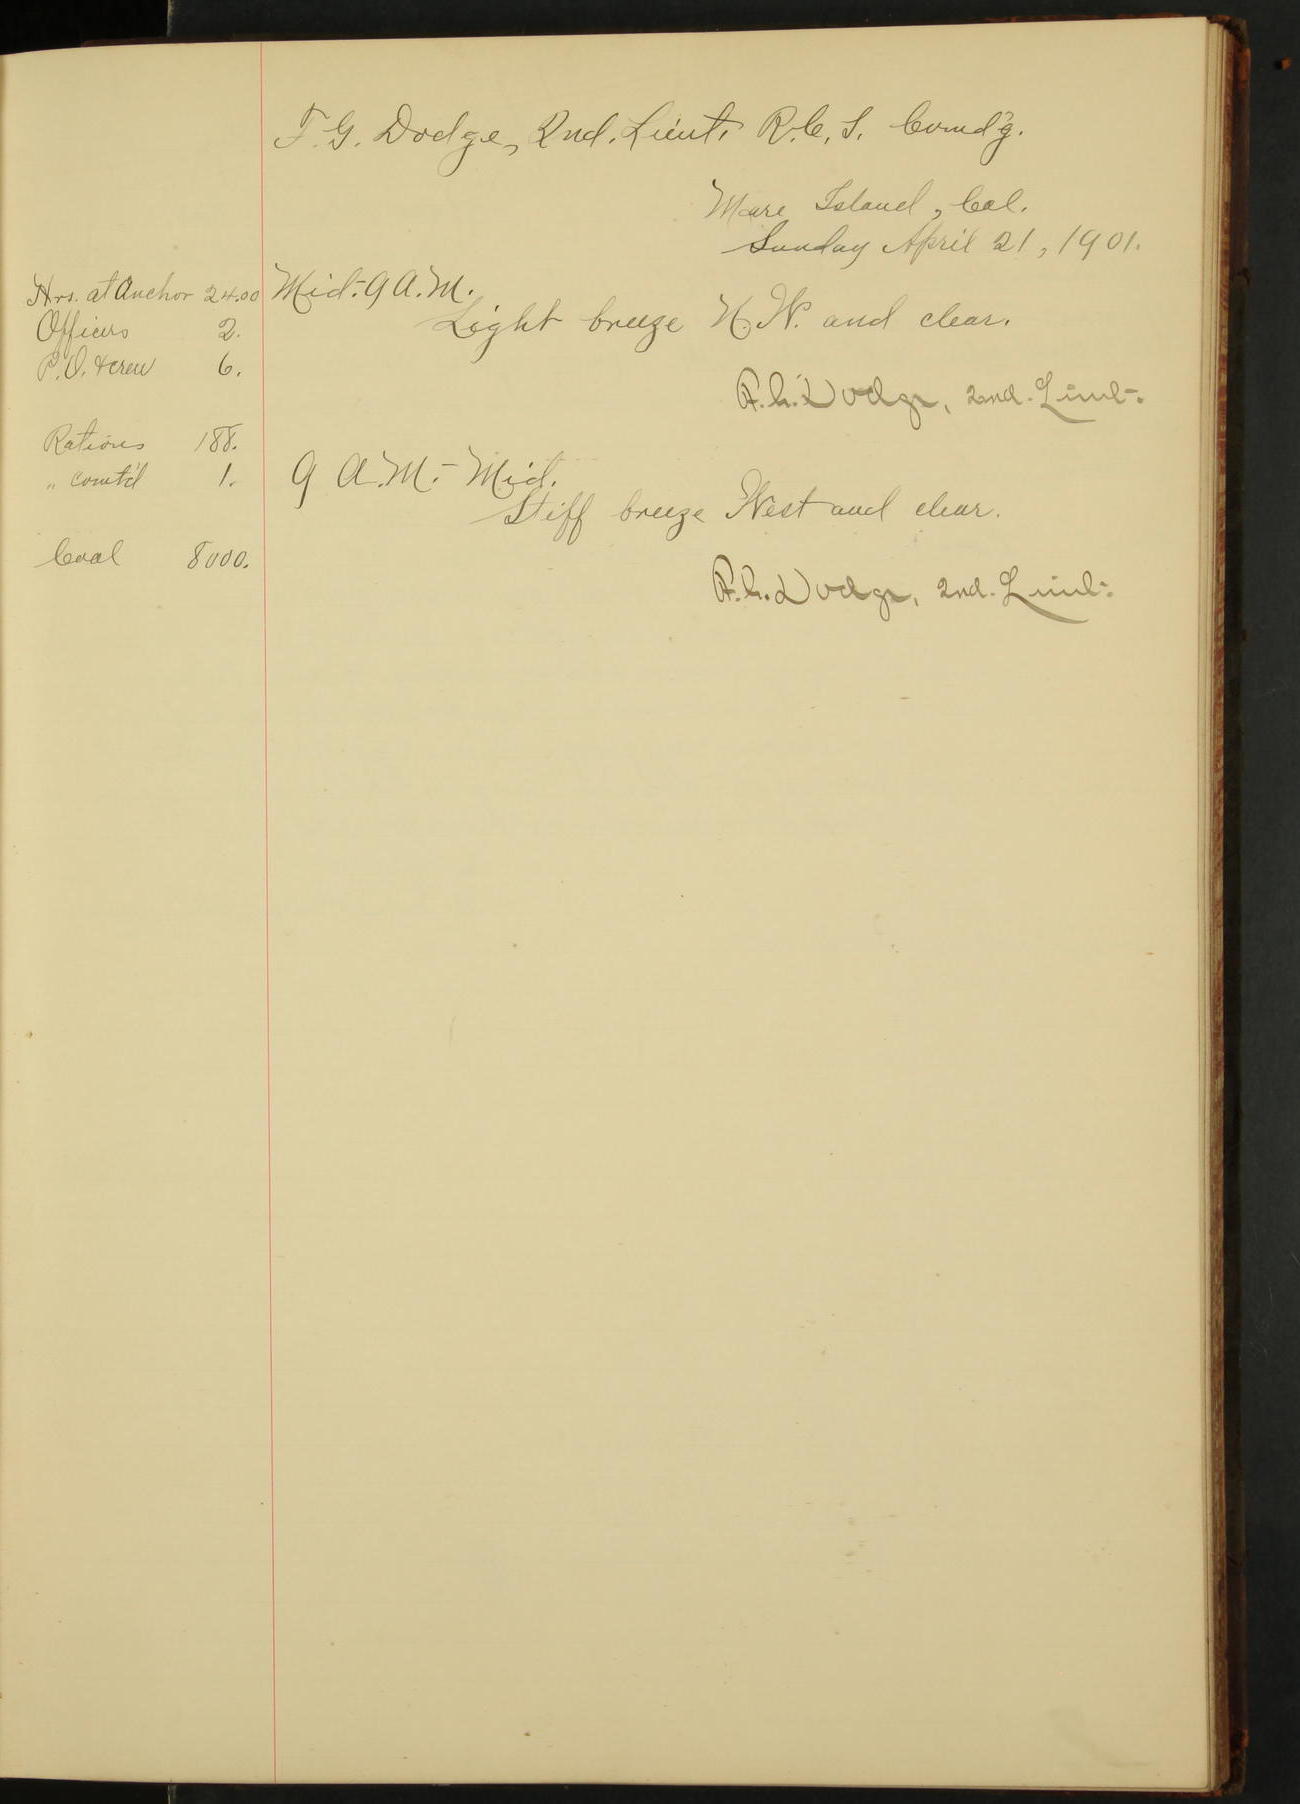 F. G. Dodge, 2nd. Lieut. R.C.S. Comd'g.
Mare Island, Cal.
Sunday April 21, 1901.
Hrs. at Anchor 24.00
Officers 2.
P.O. & crew 6.
Rations 188.
" comt'd 1.
Coal 8000.
Mid.-9 A.M.
Light breeze N.W. and clear.
F.G. Dodge, 2nd. Lieut.
9 A.M.- Mid.
Stiff breeze West and clear.
F.G. Dodge, 2nd. Lieut.